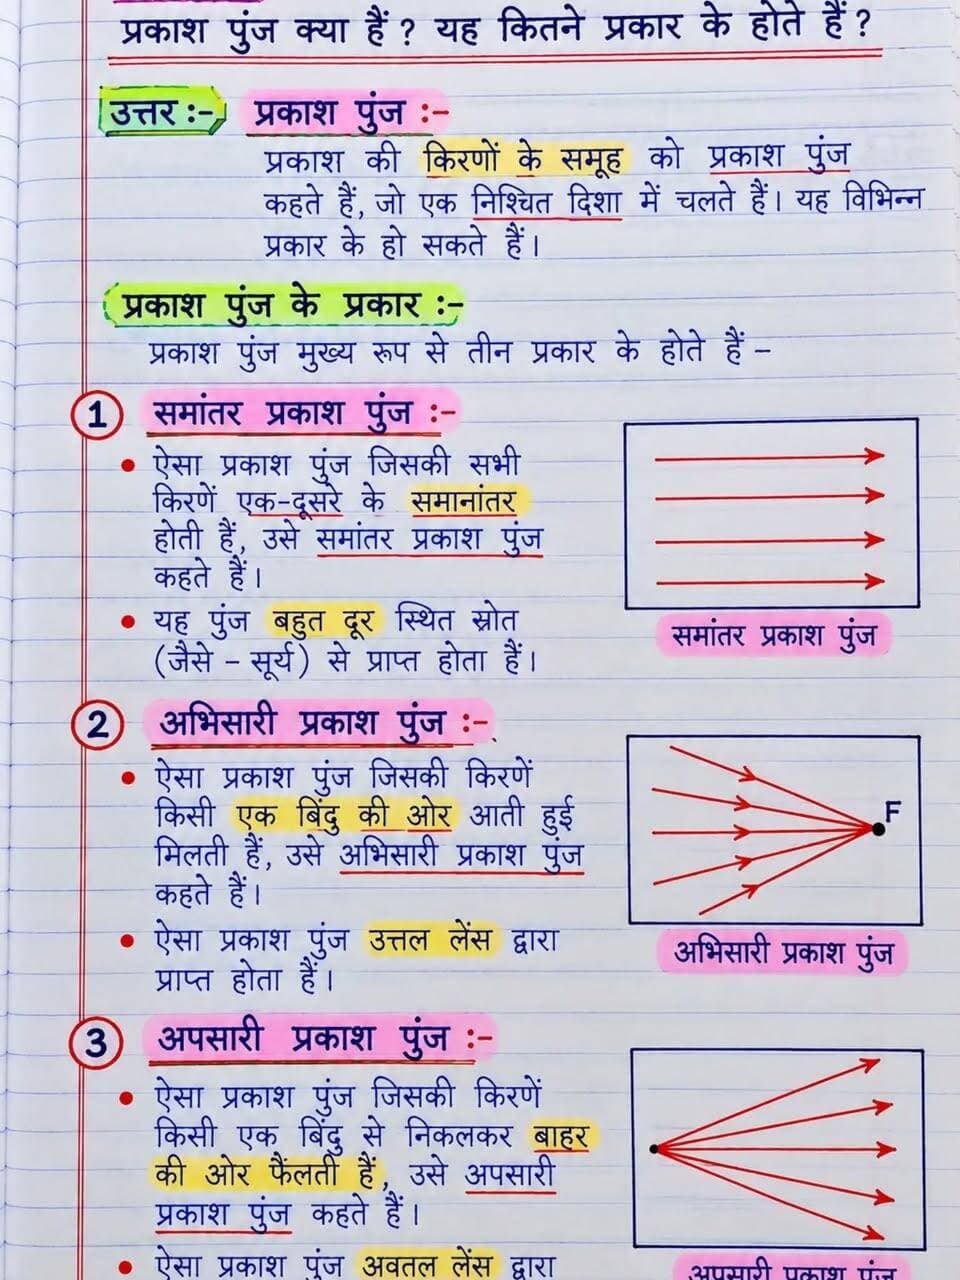 प्रकाश पुंज क्या हैं ? यह कितने प्रकार के होते हैं ?
उत्तर :- प्रकाश पुंज :-
प्रकाश की किरणों के समूह को प्रकाश पुंज
कहते हैं, जो एक निश्चित दिशा में चलते हैं। यह विभिन्न
प्रकार के हो सकते हैं।
प्रकाश पुंज के प्रकार :-
प्रकाश पुंज मुख्य रूप से तीन प्रकार के होते हैं –
1 समांतर प्रकाश पुंज :-
• ऐसा प्रकाश पुंज जिसकी सभी
किरणें एक-दूसरे के समानांतर
होती हैं, उसे समांतर प्रकाश पुंज
कहते हैं।
• यह पुंज बहुत दूर स्थित स्रोत
(जैसे – सूर्य) से प्राप्त होता हैं।
समांतर प्रकाश पुंज
2 अभिसारी प्रकाश पुंज :-
• ऐसा प्रकाश पुंज जिसकी किरणें
किसी एक बिंदु की ओर आती हुई
मिलती हैं, उसे अभिसारी प्रकाश पुंज
कहते हैं।
• ऐसा प्रकाश पुंज उत्तल लेंस द्वारा
प्राप्त होता हैं।
F
अभिसारी प्रकाश पुंज
3 अपसारी प्रकाश पुंज :-
• ऐसा प्रकाश पुंज जिसकी किरणें
किसी एक बिंदु से निकलकर बाहर
की ओर फैंलती हैं, उसे अपसारी
प्रकाश पुंज कहते हैं।
• ऐसा प्रकाश पुंज अवतल लेंस द्वारा
अपसारी प्रकाश पुंज